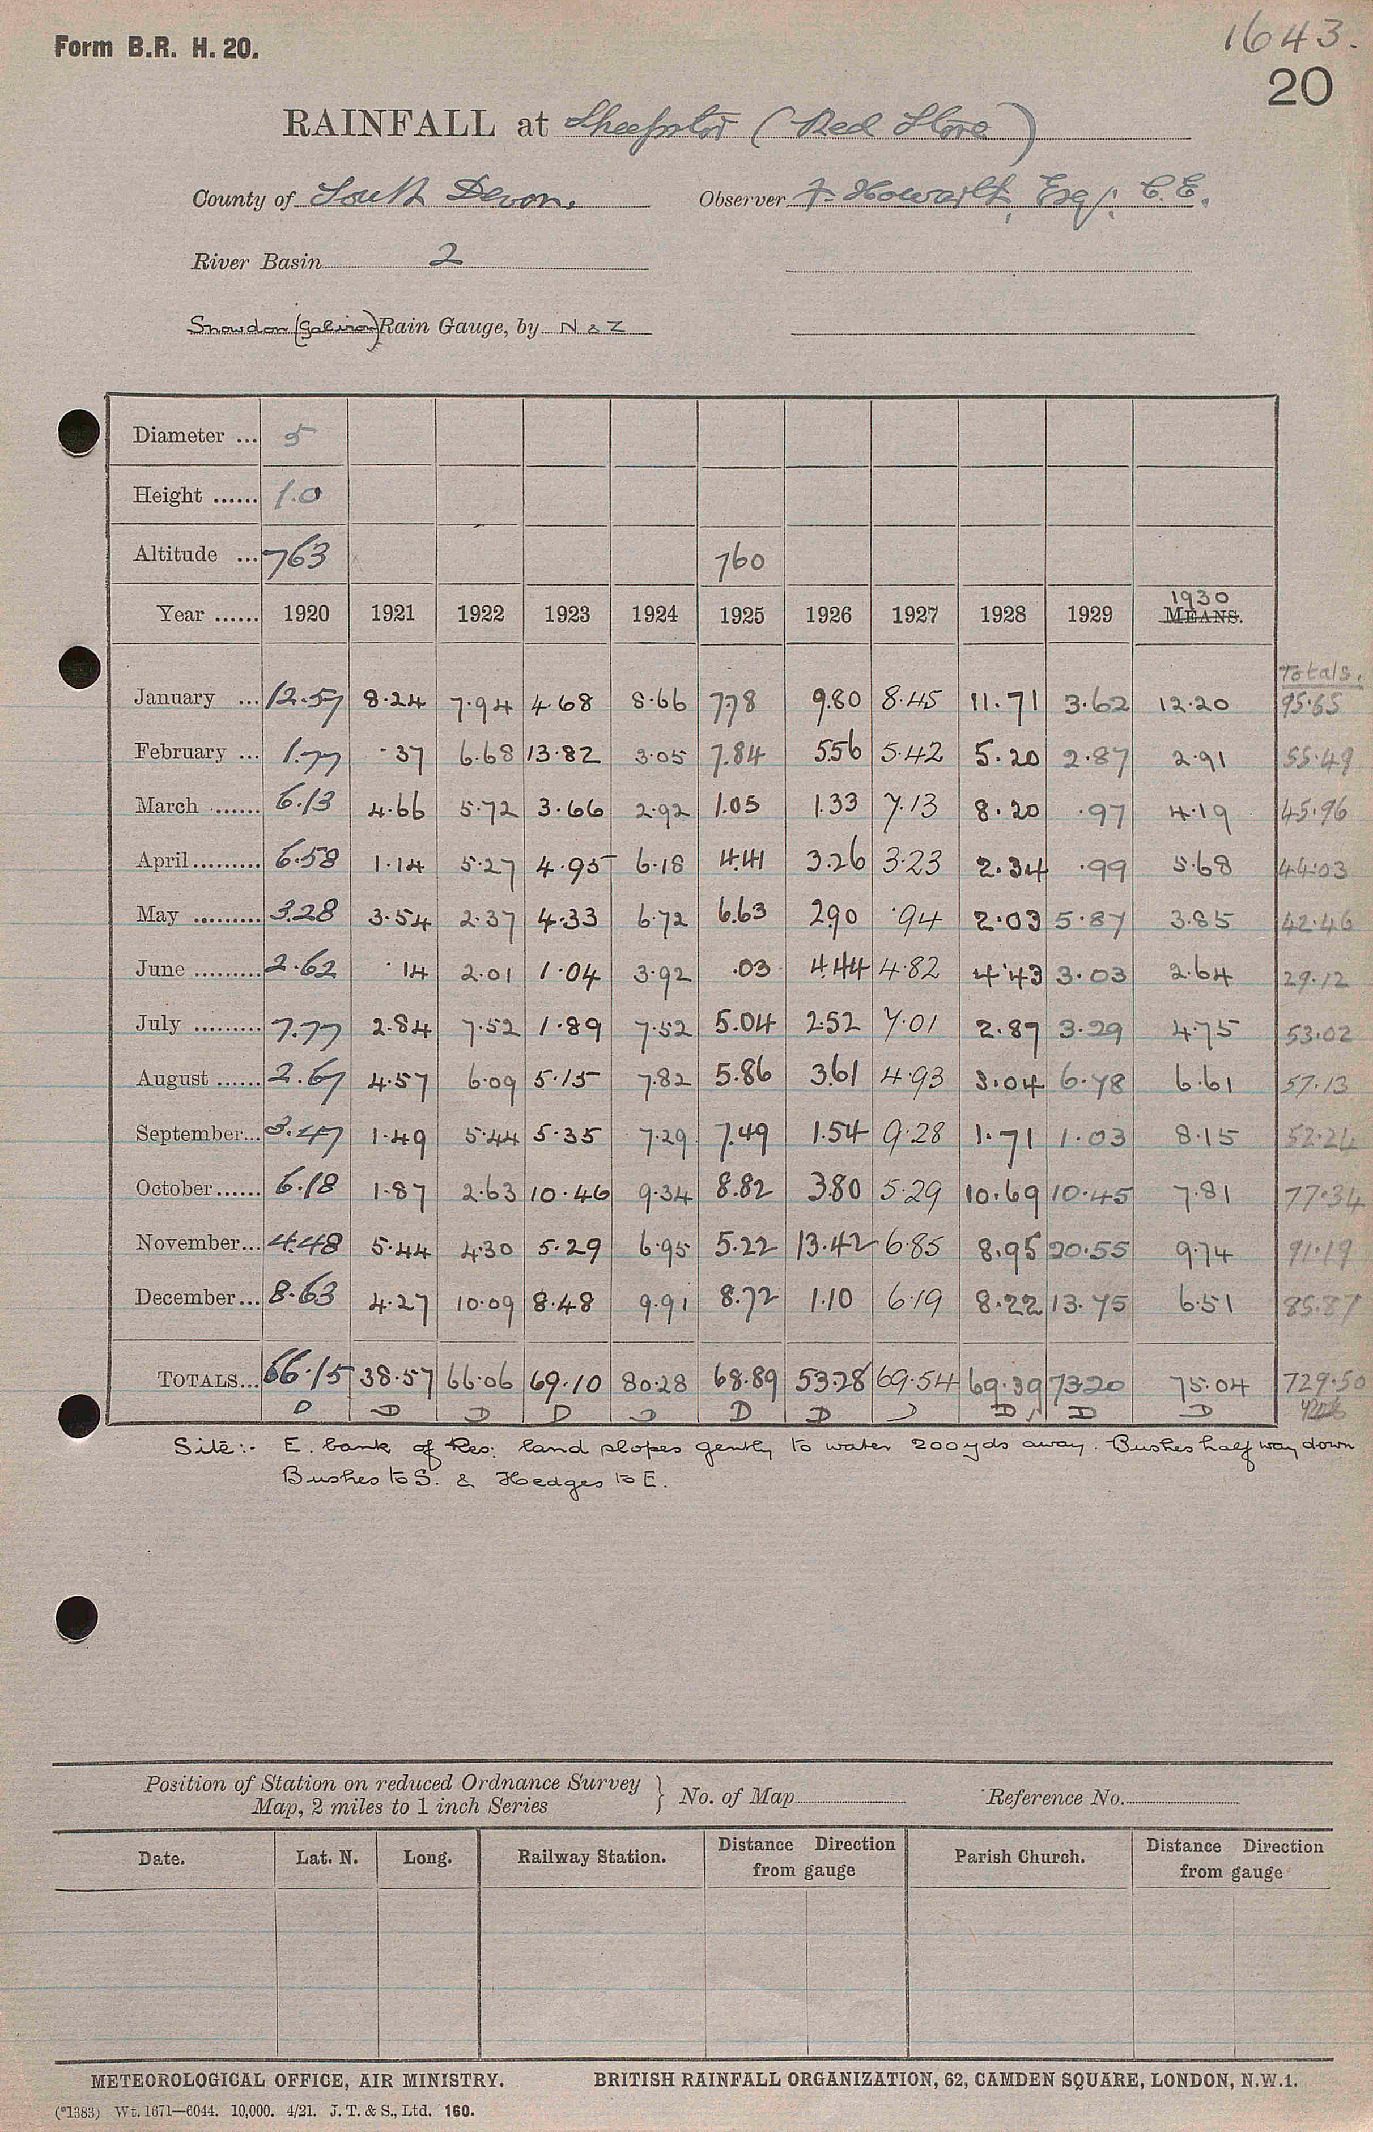 Form B.R. H. 20.
1643.
20
RAINFALL at Sheepstor (Red Store)
County of South Devon. Observer F Howarth, Esq., C.E.
River Basin 2
Snowdon (Galvron) Rain Gauge, by N & Z
Diameter ... 5
Height ...... 1.0
Altitude ... 763 760
Year ...... 1920 1921 1922 1923 1924 1925 1926 1927 1928 1929 1930 MEANS.
Totals.
January ... 12.57 8.24 7.94 4.68 8.66 7.78 9.80 8.45 11.71 3.62 12.20 95.65
February ... 1.77 .37 6.68 13.82 3.05 7.84 5.56 5.42 5.20 2.87 2.91 55.49
March ...... 6.13 4.66 5.72 3.66 2.92 1.05 1.33 7.13 8.20 .97 4.19 45.96
April ......... 6.58 1.14 5.27 4.95 6.18 4.41 3.26 3.23 2.34 .99 5.68 44.03
May ......... 3.28 3.54 2.37 4.33 6.72 6.63 2.90 .94 2.03 5.87 3.85 42.46
June ......... 2.62 .14 2.01 1.04 3.92 .03 4.44 4.82 4.43 3.03 2.64 29.12
July ......... 7.77 2.84 7.52 1.89 7.52 5.04 2.52 7.01 2.87 3.29 4.75 53.02
August ...... 2.67 4.57 6.09 5.15 7.82 5.86 3.61 4.93 3.04 6.78 6.61 57.13
September... 3.47 1.49 5.44 5.35 7.29 7.49 1.54 9.28 1.71 1.03 8.15 52.24
October ...... 6.18 1.87 2.63 10.46 9.34 8.82 3.80 5.29 10.69 10.45 7.81 77.34
November... 4.48 5.44 4.30 5.29 6.95 5.22 13.42 6.85 8.95 20.55 9.74 91.19
December... 8.63 4.27 10.09 8.48 9.91 8.72 1.10 6.19 8.22 13.75 6.51 85.87
TOTALS... 66.15 38.57 66.06 69.10 80.28 68.89 53.28 69.54 69.39 73.20 75.04 729.50
D D D D D D D D D D D
Site:- E. bank of Res: land slopes gently to water 200yds away. Bushes half way down
Bushes to S. & Hedges to E.
Position of Station on reduced Ordnance Survey Map, 2 miles to 1 inch Series } No. of Map Reference No.
Date. Lat. N. Long. Railway Station. Distance Direction from gauge Parish Church. Distance Direction from gauge
METEOROLOGICAL OFFICE, AIR MINISTRY. BRITISH RAINFALL ORGANIZATION, 62, CAMDEN SQUARE, LONDON, N.W.1.
(*1383) Wt. 1671—6044. 10,000. 4/21. J. T. & S., Ltd. 160.